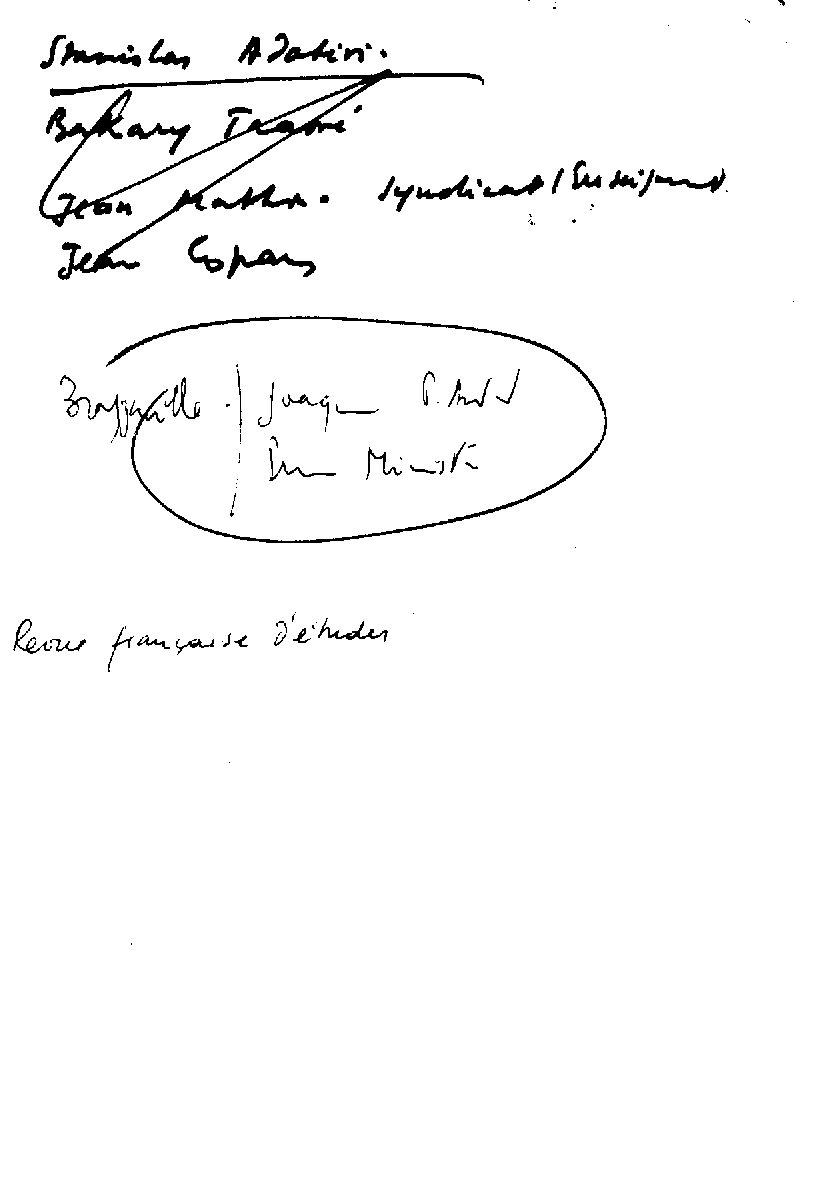 Stanislas Adotevi.
Bakary Traoré
Jean Syndicat / Enseignement
Jean Copans
Brazzaville
Ministre
Revue française d'études